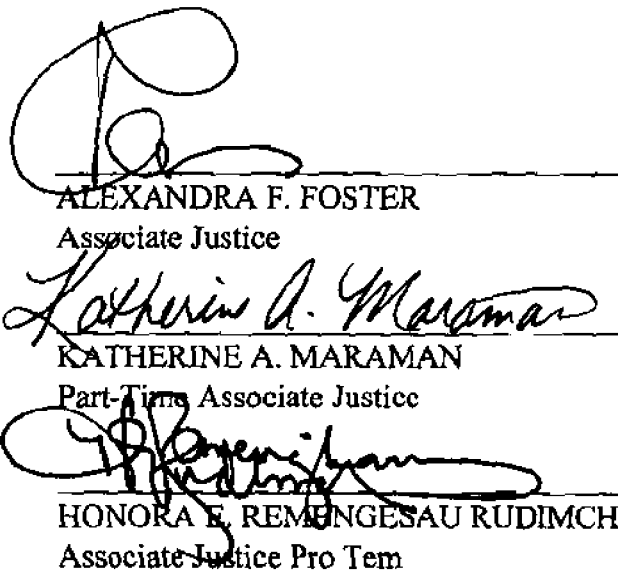 ALEXANDRA F. FOSTER
Associate Justice
Katherine A. Maraman
KATHERINE A. MARAMAN
Part-Time Associate Justice
HONORA E. REMENGESAU RUDIMCH
Associate Justice Pro Tem